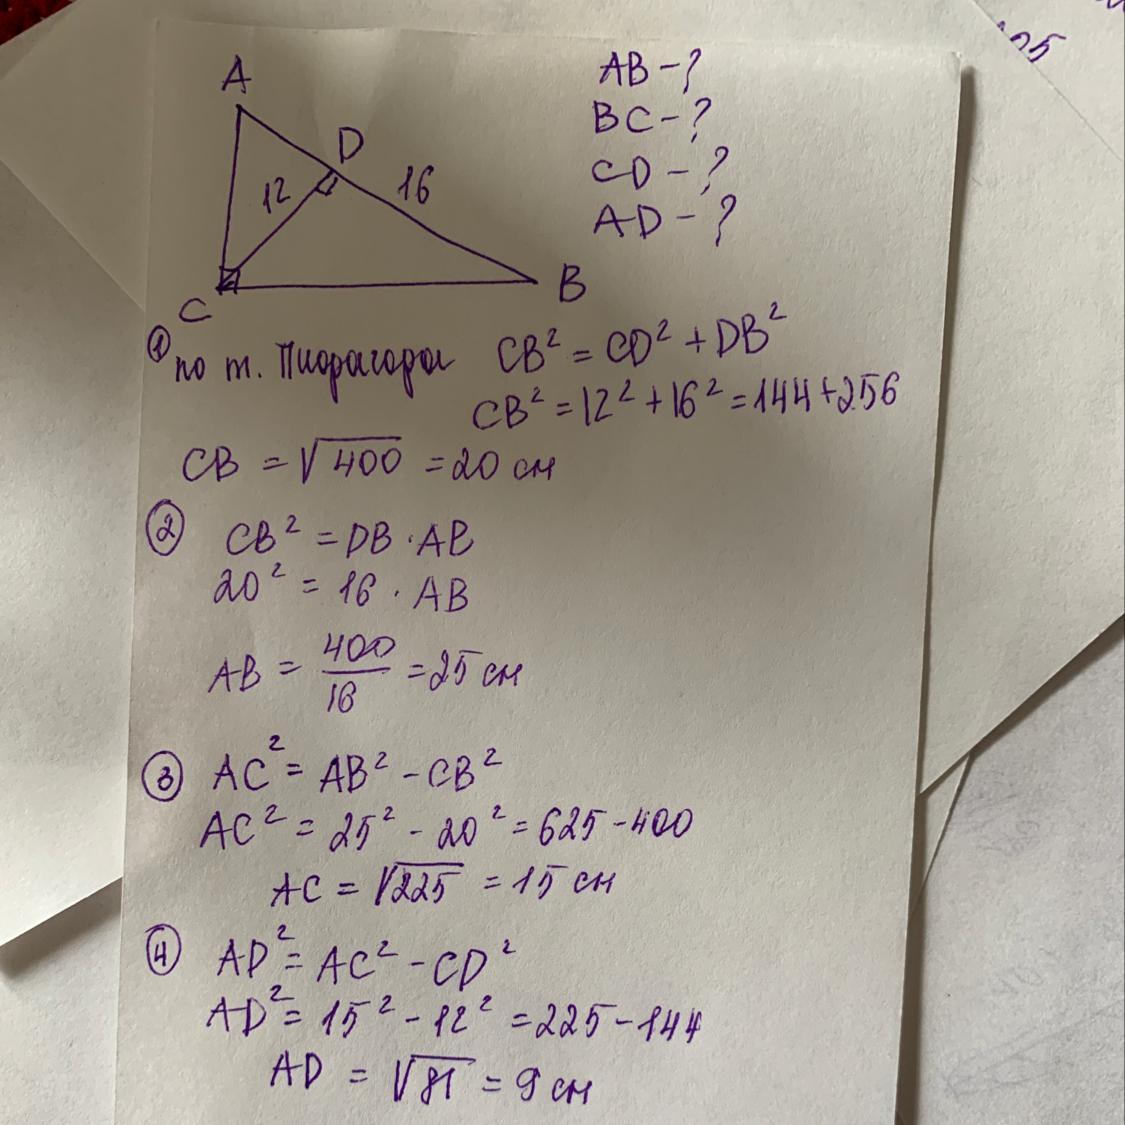 A
D
12
16
C
B
AB - ?
BC - ?
CD - ?
AD - ?
① по т. Пифагора CB² = CD² + DB²
CB² = 12² + 16² = 144 + 256
CB = √400 = 20 см
② CB² = DB · AB
20² = 16 · AB
AB = 400/16 = 25 см
③ AC² = AB² - CB²
AC² = 25² - 20² = 625 - 400
AC = √225 = 15 см
④ AD² = AC² - CD²
AD² = 15² - 12² = 225 - 144
AD = √81 = 9 см